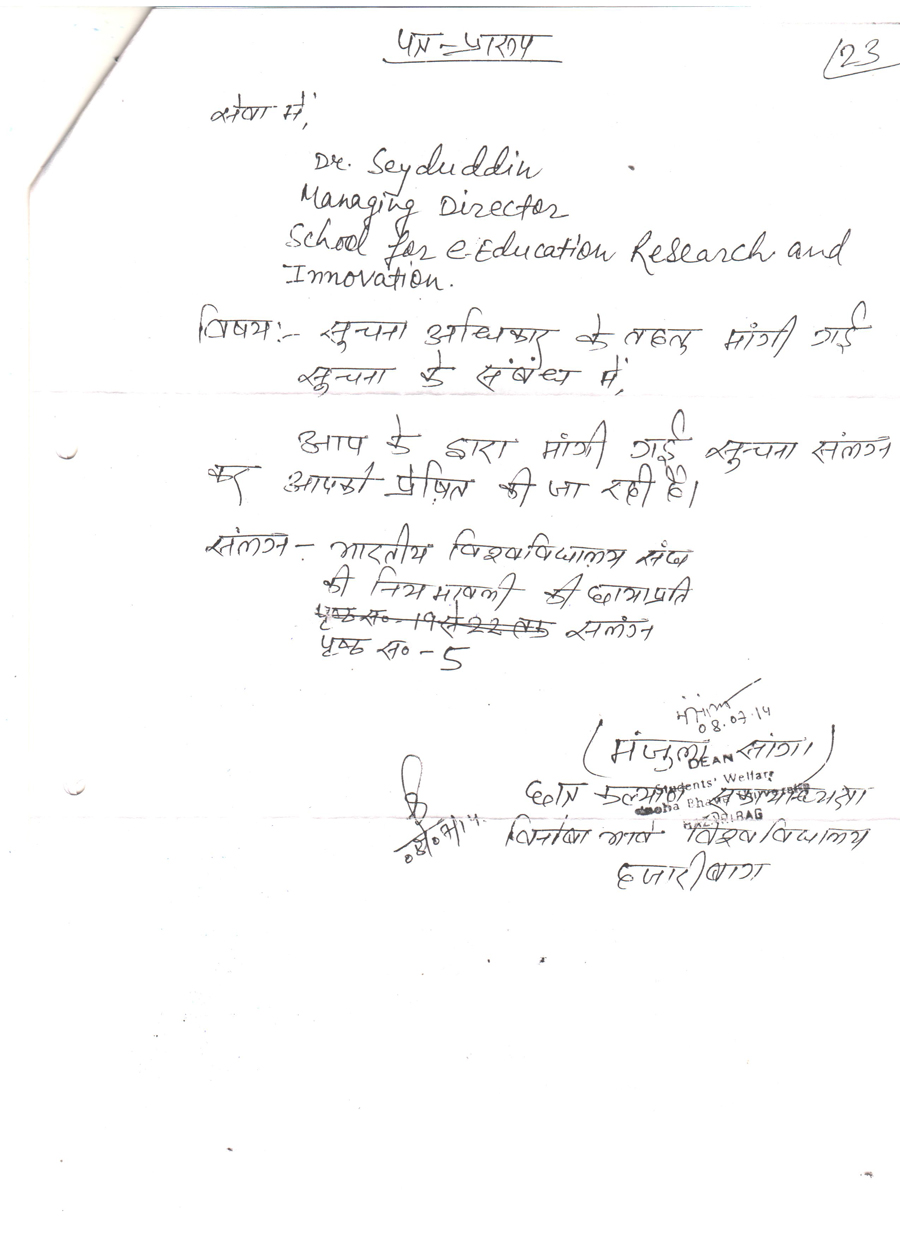 पत्र-प्रारूप
23
सेवा में,
Dr. Seyduddin
Managing Director
School for e-Education Research and
Innovation.
विषय:- सुचना अधिकार के तहत मांगी गई
सुचना के संबंध में,
आप के द्वारा मांगी गई सुचना संलग्न
कर आपको प्रेषित की जा रही है।
संलग्न- भारतीय विश्वविद्यालय संघ
की नियमावली की छायाप्रति
पृष्ठ स०-19 से 22 तक संलग्न
पृष्ठ स०-5
08.07.14
(मंजुला सांगा)
DEAN
Students' Welfare
छात्र कल्याण
HAZARIBAG
08.07.14.
विनोबा भावे विश्वविद्यालय
हजारीबाग